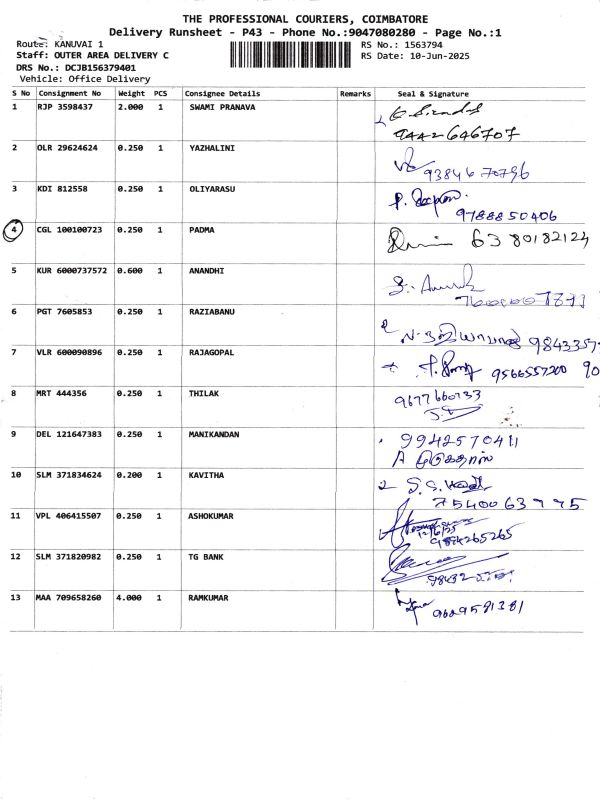 THE PROFESSIONAL COURIERS, COIMBATORE
Delivery Runsheet - P43 - Phone No.:9047080280 - Page No.:1
Route: KANUVAI 1 RS No.: 1563794
Staff: OUTER AREA DELIVERY C RS Date: 10-Jun-2025
DRS No.: DCJB156379401
Vehicle: Office Delivery
S No Consignment No Weight PCS Consignee Details Remarks Seal & Signature
1 RJP 3598437 2.000 1 SWAMI PRANAVA
9442646707
2 OLR 29624624 0.250 1 YAZHALINI
9384670796
3 KDI 812558 0.250 1 OLIYARASU
9788850406
4 CGL 100100723 0.250 1 PADMA 6380182124
5 KUR 6000737572 0.600 1 ANANDHI
6 PGT 7605853 0.250 1 RAZIABANU
7 VLR 600090896 0.250 1 RAJAGOPAL 9566557200 90
8 MRT 444356 0.250 1 THILAK 9677660733
9 DEL 121647383 0.250 1 MANIKANDAN 9942570411
10 SLM 371834624 0.200 1 KAVITHA
7540063775
11 VPL 406415507 0.250 1 ASHOKUMAR
12/6/25
12 SLM 371820982 0.250 1 TG BANK
13 MAA 709658260 4.000 1 RAMKUMAR 9629581381